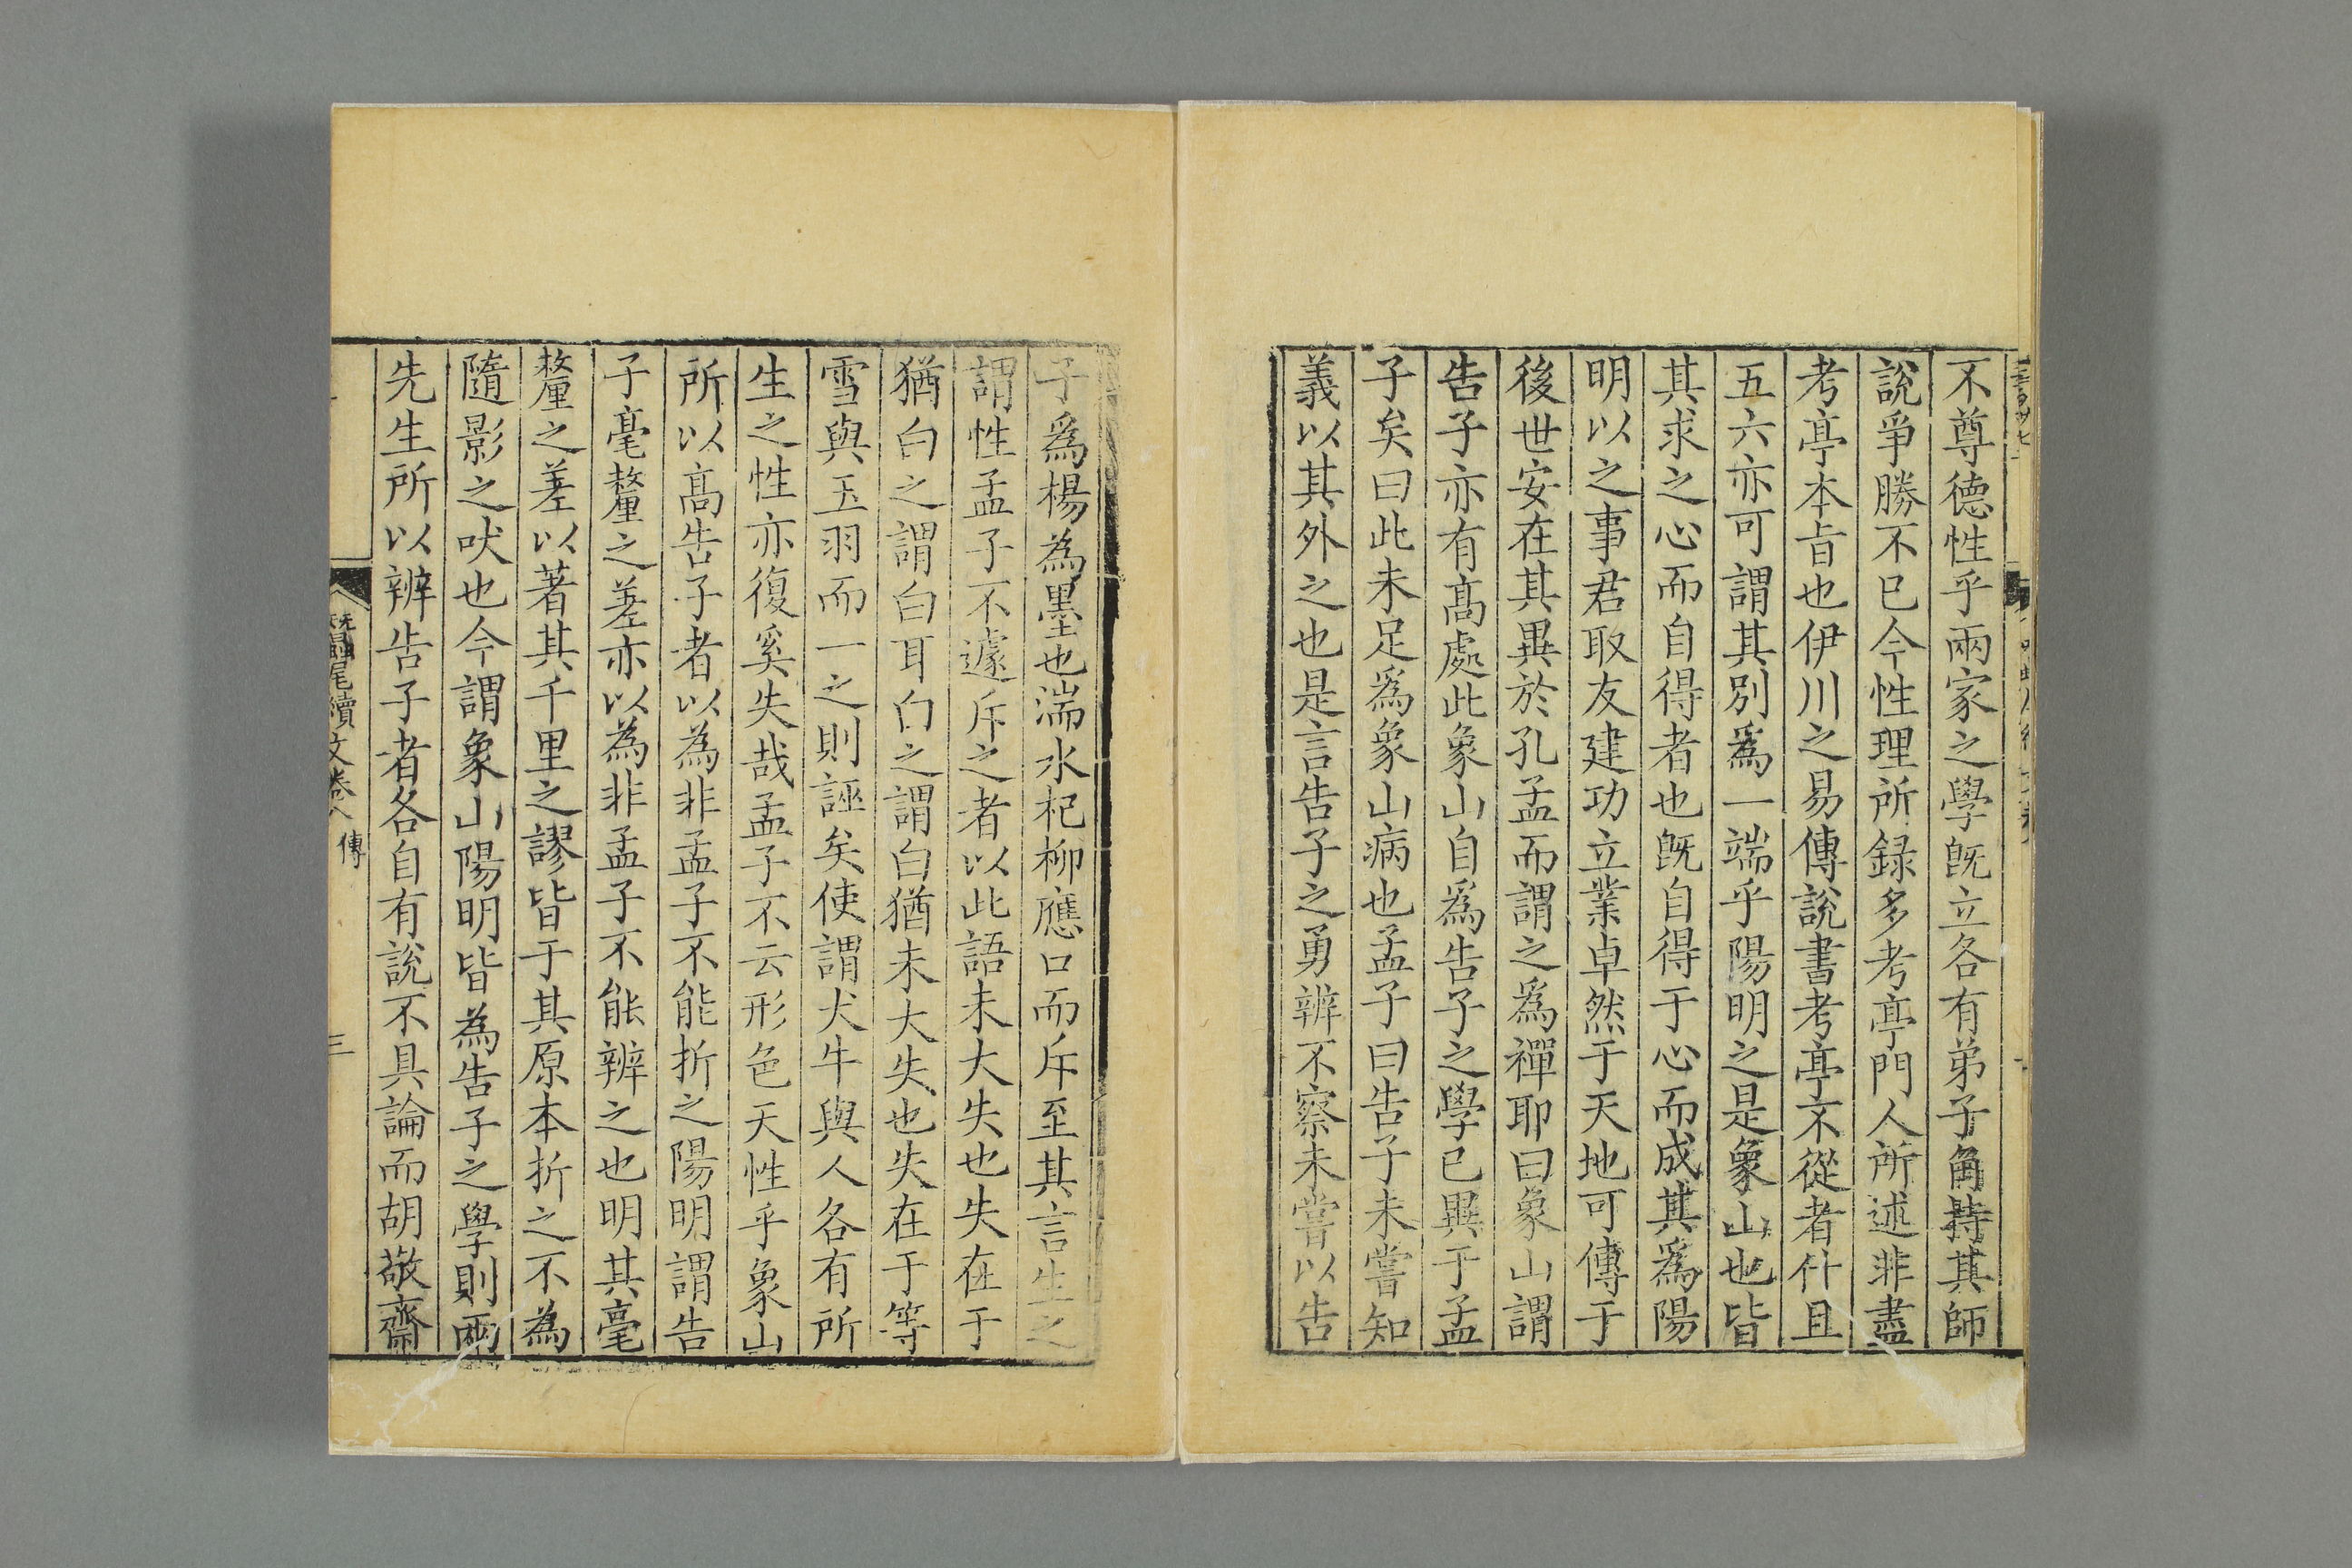 不尊德性乎兩家之學旣立各有弟子角持其師
說爭勝不已今性理所録多考亭門人所述非盡
考亭本旨也伊川之易傳說書考亭不從者什且
五六亦可謂其別爲一端乎陽明之是象山也皆
其求之心而自得者也旣自得于心而成其爲陽
明以之事君取友建功立業卓然于天地可傳于
後世安在其異於孔孟而謂之爲禪耶曰象山謂
告子亦有髙處此象山自爲告子之學已異于孟
子矣曰此未足爲象山病也孟子曰告子未嘗知
義以其外之也是言告子之勇辨不察未嘗以告
子爲楊為墨也湍水杞柳應口而斥至其言生之
謂性孟子不遽斥之者以此語未大失也失在于
猶白之謂白耳白之謂白猶未大失也失在于等
雪與玉羽而一之則誣矣使謂犬牛與人各有所
生之性亦復奚失哉孟子不云形色天性乎象山
所以髙告子者以為非孟子不能折之陽明謂告
子毫釐之差亦以為非孟子不能辨之也明其毫
釐之差以著其千里之謬皆于其原本折之不為
隨影之吠也今謂象山陽明皆為告子之學則兩
先生所以辨告子者各自有說不具論而胡敬齋
尾續文卷八 傳
三